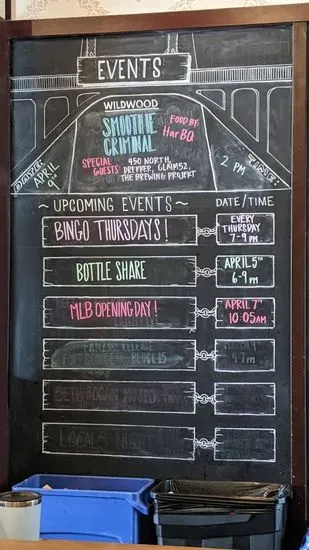 EVENTS
WILDWOOD
SMOOTHIE
CRIMINAL
FOOD BY:
HarBQ
SPECIAL GUESTS: 450 NORTH,
DREKKER, GLAIMS2,
THE BREWING PROJEKT
DATE:
APRIL
9TH
TIME:
2 PM
~ UPCOMING EVENTS ~
DATE/TIME
BINGO THURSDAYS!
EVERY
THURSDAY
7-9 PM
BOTTLE SHARE
APRIL 5TH
6-9 PM
MLB OPENING DAY!
APRIL 7TH
10:05AM
RELEASE
BLOCK 15
LOCALS NIGHT